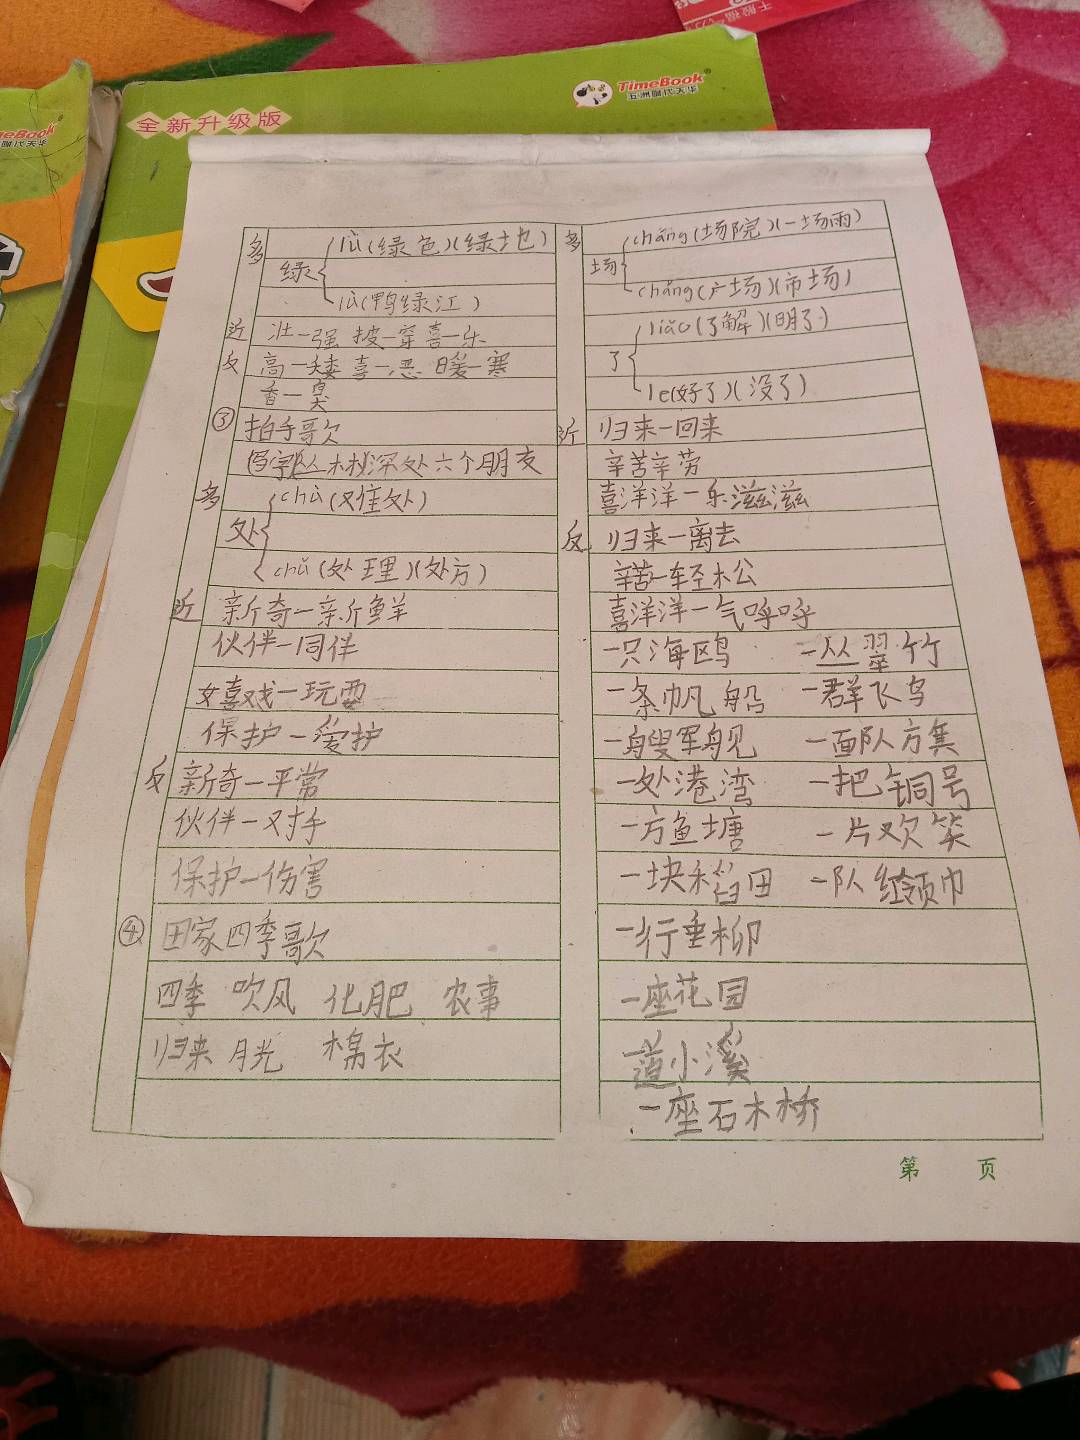 千般福
TimeBook
五洲时代天华
全新升级版
多
绿
lǜ(绿色)(绿地)
lù(鸭绿江)
近 壮一强 披一穿 喜一乐
反 高一矮 喜一恶 暖一寒
香一臭
③ 拍手歌
写字 丛林 深处 六个 朋友
多
处
chù(对佳处)
chǔ(处理)(处方)
近 新奇一新鲜
伙伴一同伴
嬉戏一玩耍
保护一爱护
反 新奇一平常
伙伴一对手
保护一伤害
④ 田家四季歌
四季 吹风 化肥 农事
归来 月光 棉衣
多
场
cháng(场院)(一场雨)
chǎng(广场)(市场)
了
liǎo(了解)(明了)
le(好了)(没了)
近 归来一回来
辛苦辛劳
喜洋洋一乐滋滋
反 归来一离去
辛苦一轻松
喜洋洋一气呼呼
一只海鸥 一丛翠竹
一条帆船 一群飞鸟
一艘军舰 一面队旗
一处港湾 一把铜号
一方鱼塘 一片欢笑
一块稻田 一队红领巾
一行垂柳
一座花园
一道小溪
一座石木桥
第 页